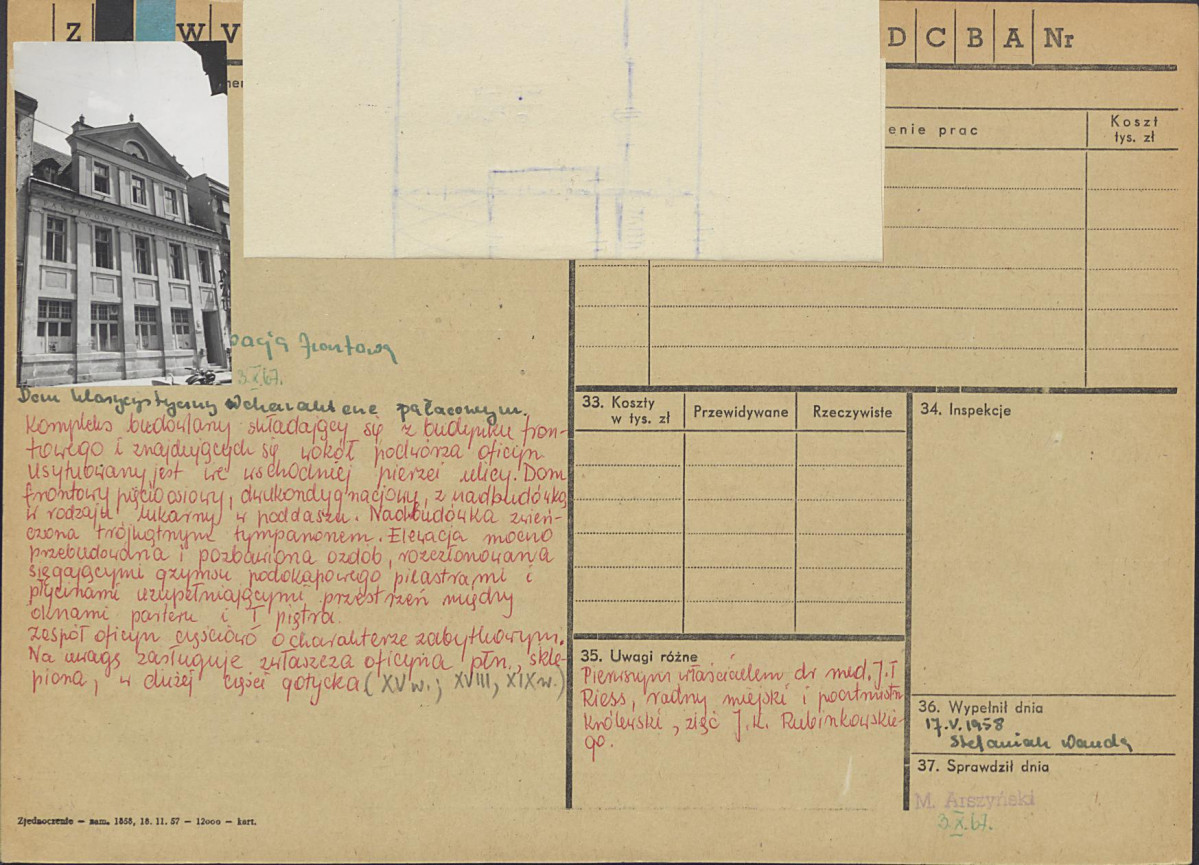 Z A W V
D C B A Nr
enie prac
Koszt
tys. zł
acja frontowa
3.X.67.
Dom klasycystyczny o charakterze pałacowym.
Kompleks budowlany składający się z budynku fron-
towego i znajdujących się wokół podwórza oficyn
usytuowany jest we wschodniej pierzei ulicy. Dom
frontowy pięcioosiowy, dwukondygnacjowy, z nadbudówką
w rodzaju lukarny w poddaszu. Nadbudówka zwień-
czona trójkątnym tympanonem. Elewacja mocno
przebudowana i pozbawiona ozdób, rozczłonkowana
sięgającymi gzymsu podokapowego pilastrami i
płycinami uzupełniającymi przestrzeń między
oknami parteru i I piętra.
Zespół oficyn częściowo o charakterze zabytkowym.
Na uwagę zasługuje zwłaszcza oficyna płn., skle-
piona, w dużej części gotycka (XV w.; XVIII, XIX w.)
33. Koszty
w tys. zł
Przewidywane
Rzeczywiste
34. Inspekcje
35. Uwagi różne
Pierwszym właścicielem dr med. J.T
Riess, radny miejski i poczmistrz
królewski, zięć J.K. Rubinkowskie-
go.
36. Wypełnił dnia
17.V.1958
Stefaniak Wanda
37. Sprawdził dnia
M. Arszyński
3.X.67.
Zjednoczenie — zam. 1858, 18. 11. 57 — 12000 — kart.